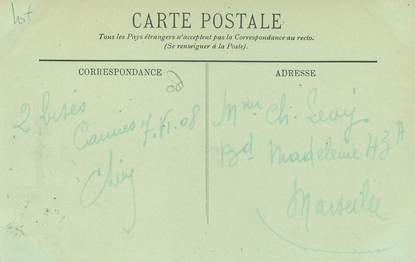 lot
CARTE POSTALE
Tous les Pays étrangers n'acceptent pas la Correspondance au recto.
(Se renseigner à la Poste).
CORRESPONDANCE
2 bises
Cannes 7.XI.08
ADRESSE
Mme Ch. Levy
Bd Madeleine 43A
Marseille